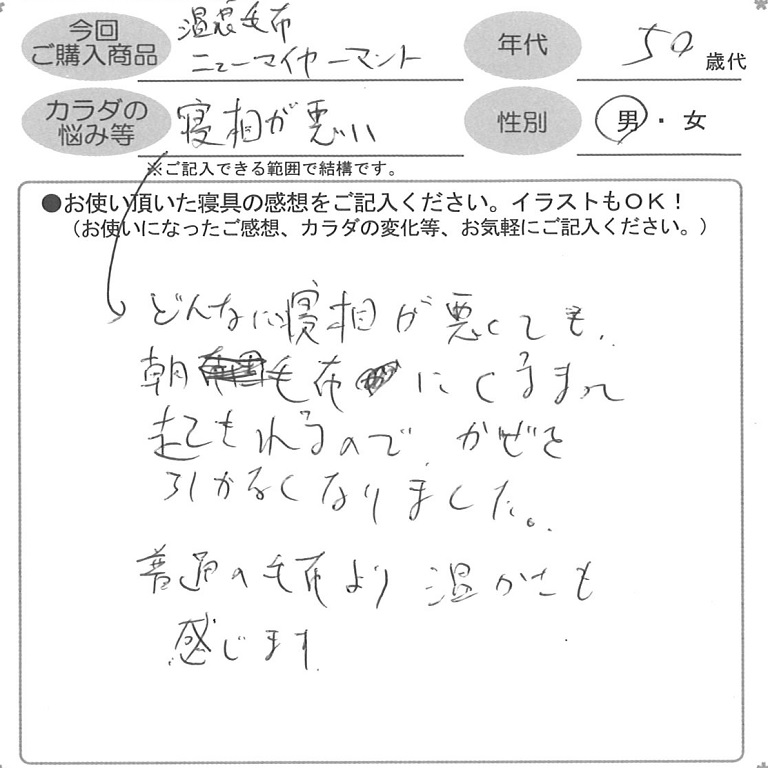 今回
ご購入商品
温感毛布
ニューマイヤーマント
年代
50 歳代
カラダの
悩み等
寝相が悪い
性別
男・女
※ご記入できる範囲で結構です。
●お使い頂いた寝具の感想をご記入ください。イラストもOK!
(お使いになったご感想、カラダの変化等、お気軽にご記入ください。)
どんなに寝相が悪くても、
朝 毛布 にくるまって
起てもれるので、かぜを
引かなくなりました。
普通の毛布より温かさも
感じます